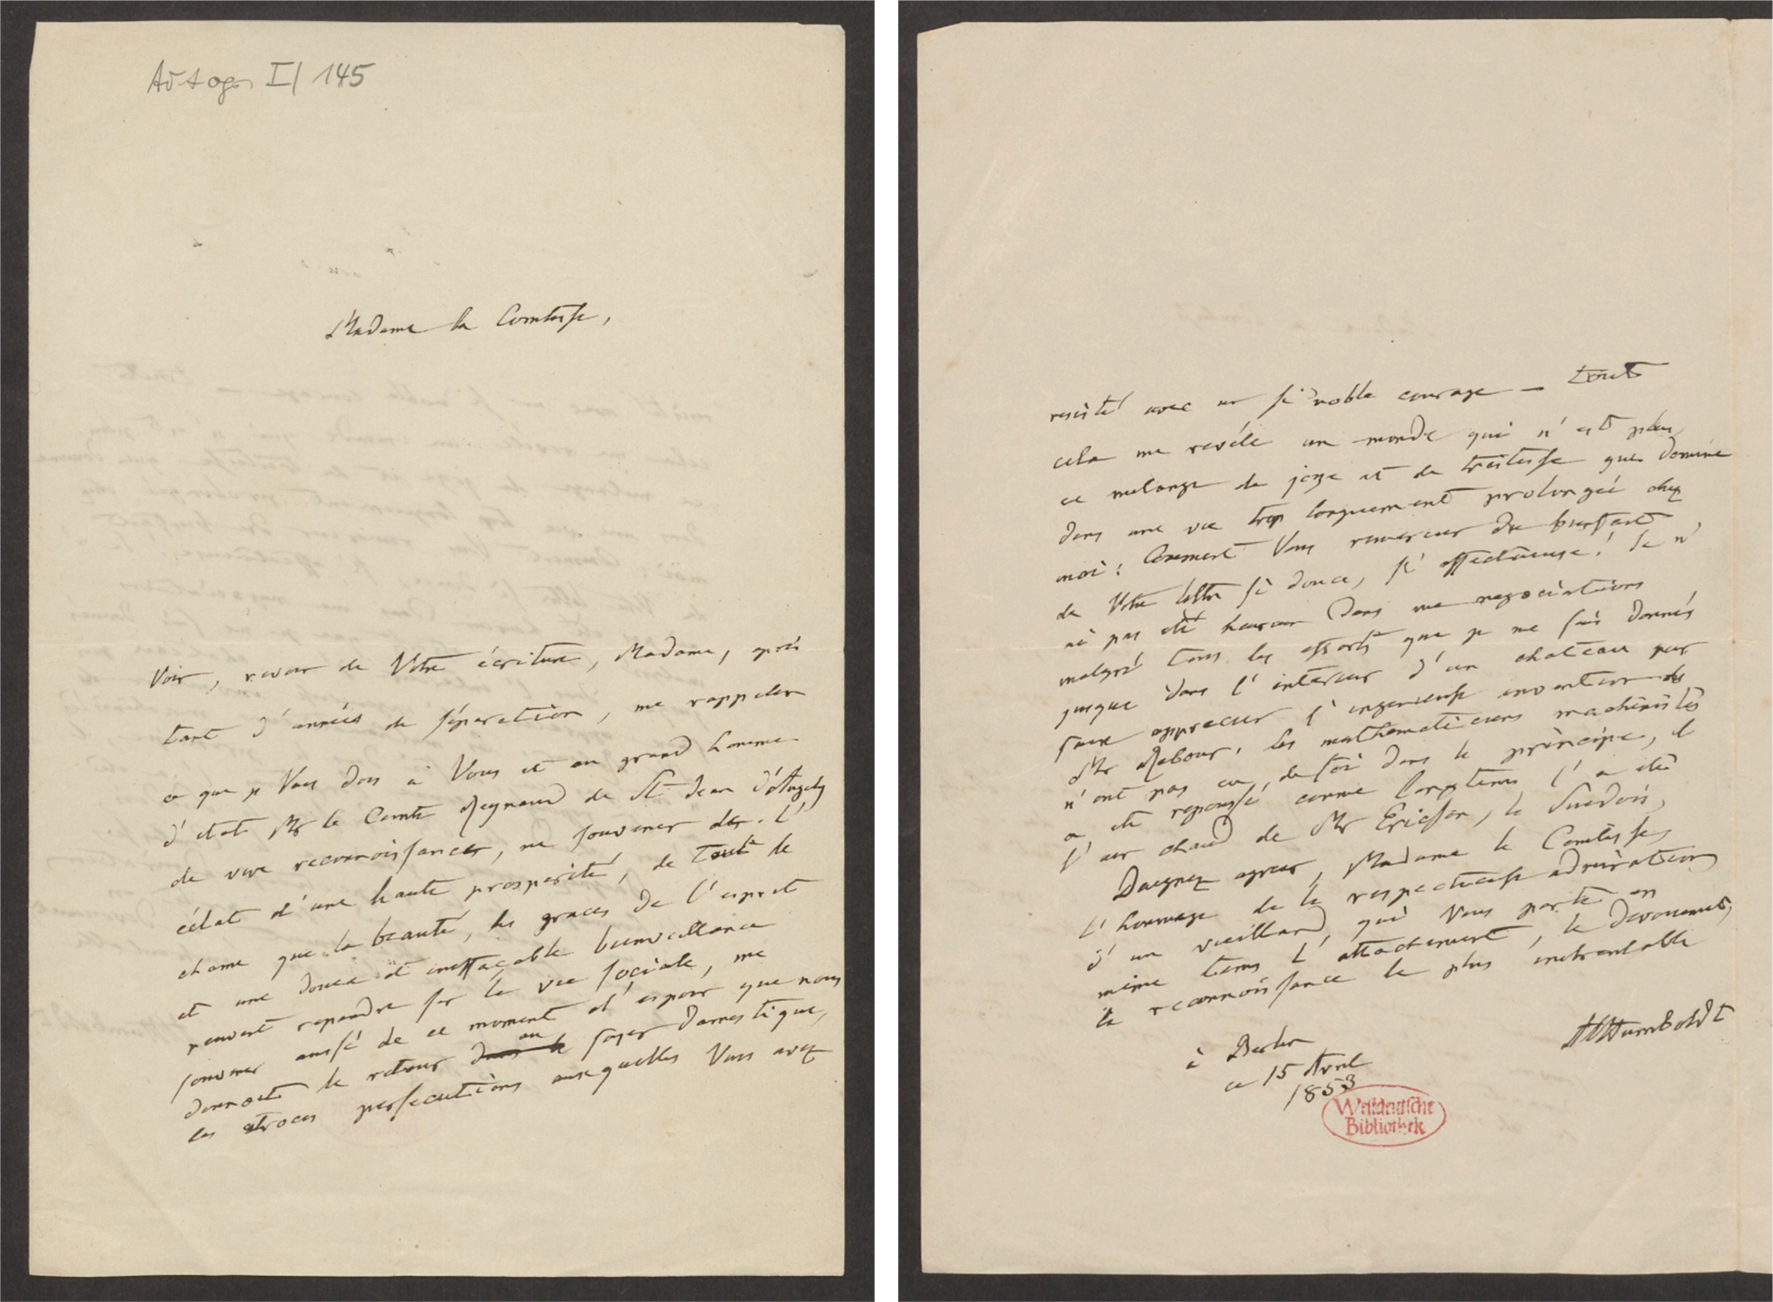 Autogr. I/145
Madame la Comtesse,
Voir, revoir de Votre écriture, Madame, après
tant d'années de séparation, me rappeler
ce que je Vous dois à Vous et au grand homme
d'état Mr le Comte Regnaud de St Jean d'Angely
de vive reconnoissance, me souvenir de l'
éclat d'une haute prosperité, de tout le
charme que la beauté, les graces de l'esprit
et une douce et ineffaçable bienveillance
peuvent repandre sur la vie sociale, me
souvenir aussi de ce moment d'espoir que nous
donnoit le retour au foyer domestique,
les atroces persecutions auxquelles Vous avez
resisté avec un si noble courage — tout
cela me revèle un monde qui n'est plus,
ce melange de joye et de tristesse qui domine
dans une vie trop longuement prolongée chez
moi! Comment Vous remercier du
de Votre lettre si douce, si affectueuse! Je n'
ai pas été heureux dans ma negociation
malgré tous les efforts que je me suis donnés
jusque dans l'interieur d'un chateau pour
faire apprecier l'ingenieuse invention de
Mr Rabour. les mathematiciens machinistes
n'ont pas eu de foi dans le principe, il
a été repoussé comme longtems l'a été
l'air chaud de Mr Ericson, le Suedois,
Daignez agréer, Madame la Comtesse,
l'hommage de la respectueuse admiration
d'un vieillard, qui Vous porte en
même tems l'attachement, le devouement,
la reconnoissance la plus inebranlable
AHumboldt
à Berlin
ce 15 Avril
1853
Westdeutsche
Bibliothek